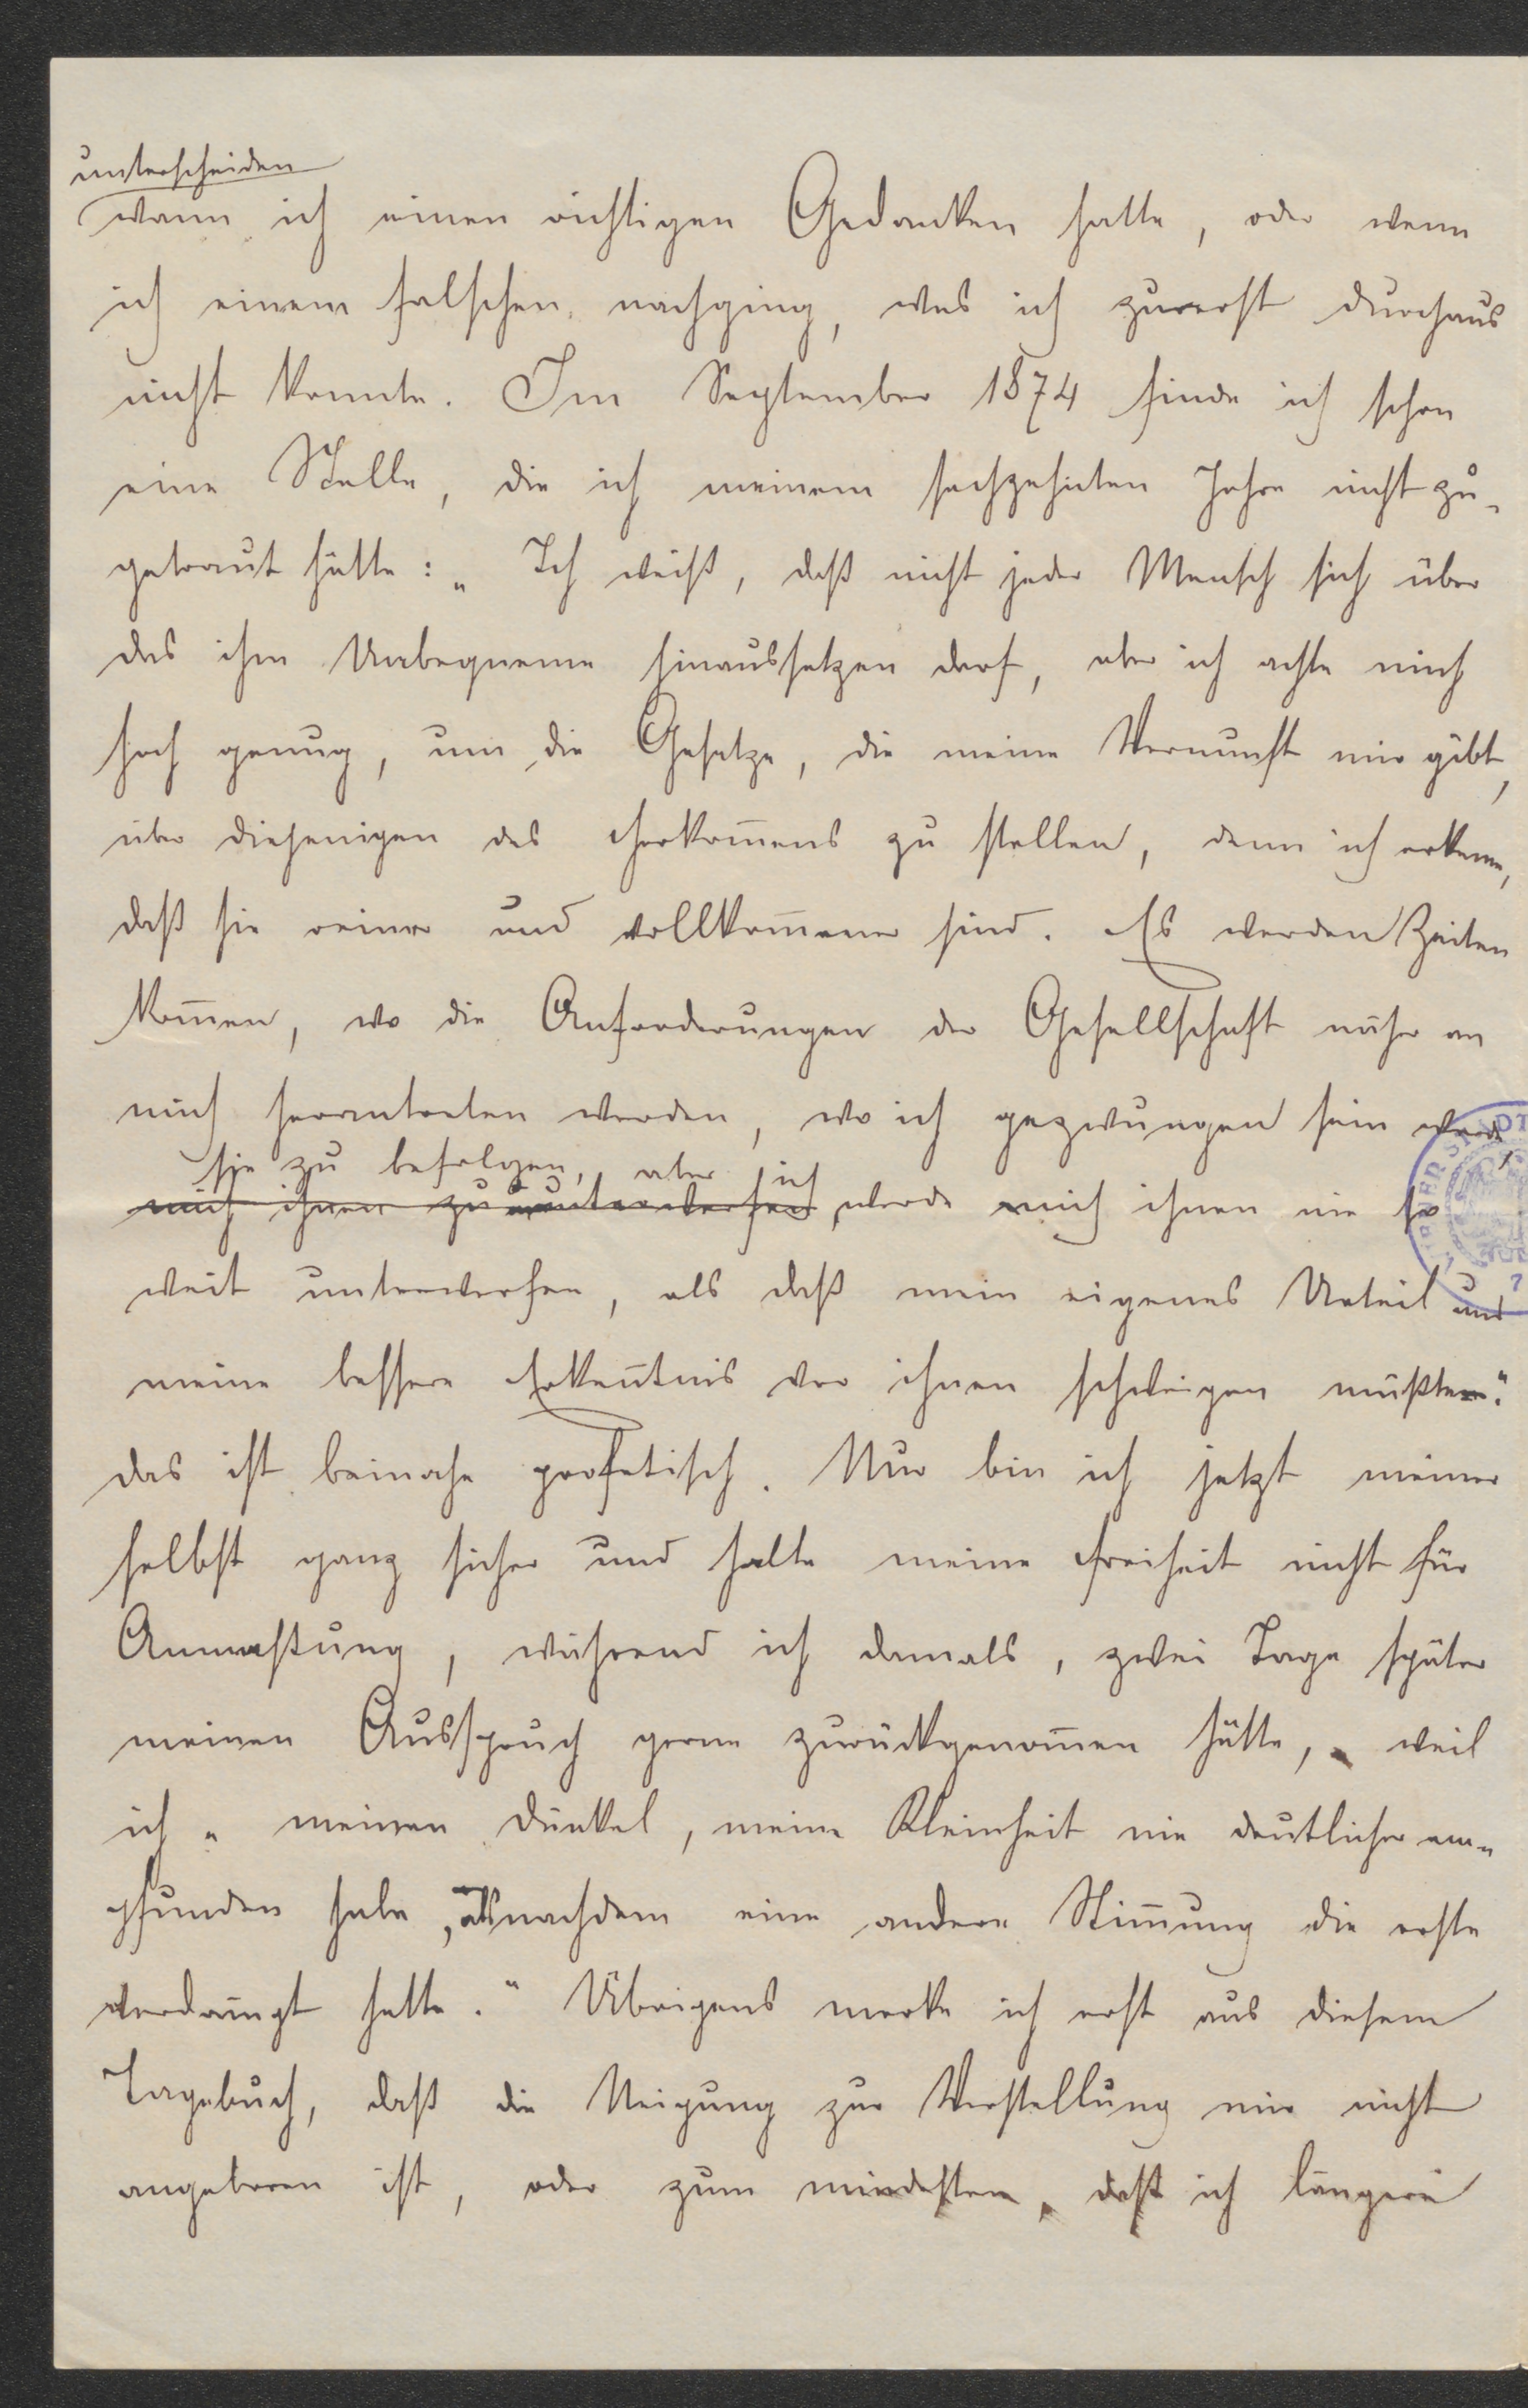 unterscheiden
wann ich einen richtigen Gedanken hatte, oder wenn
ich einem falschen nachging, was ich zuerst durchaus
nicht konnte. Im September 1874 finde ich schon
eine Stelle, die ich meinem sechzehnten Jahre nicht zu-
getraut hätte: „Ich weiß, daß nicht jeder Mensch sich über
das ihm Unbequeme hinaussetzen darf, aber ich achte mich
hoch genug, um die Gesetze, die meine Vernunft mir gibt,
über diejenigen des Herkom̅ens zu stellen, denn ich erkenne,
daß sie reiner und vollkom̅ener sind. Es werden Zeiten
kom̅en, wo die Anforderungen der Gesellschaft näher an
mich herantreten werden, wo ich gezwungen sein werde
sie zu befolgen, aber ich
mich ihnen zu unterwerfen werde mich ihnen nie so
weit unterwerfen, als daß mein eigenes Urteil und
meine bessere Erken̅tnis vor ihnen schweigen müßten."
das ist beinahe profetisch. Nur bin ich jetzt meiner
selbst ganz sicher und halte meine Freiheit nicht für
Anmaßung, während ich damals, zwei Tage später
meinen Ausspruch gerne zurückgenom̅en hätte, weil
ich „meinen Dünkel, meine Kleinheit nie deutlicher em-
pfunden habe, als nachdem eine andere Stim̅ung die erste
verdrängt hatte." Übrigens merke ich erst aus diesem
Tagebuch, daß die Neigung zur Verstellung mir nicht
angeboren ist, oder zum mindesten, daß ich längere